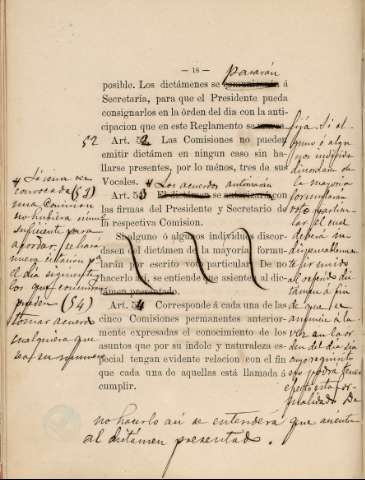 — 18 —
pasarán
posible. Los dictámenes se comunicarán á
Secretaría, para que el Presidente pueda
consignarlos en la órden del dia con la anti-
cipacion que en este Reglamento se
52
Art. 52 Las Comisiones no pueden
emitir dictámen en ningun caso sin ha-
llarse presentes, por lo ménos, tres de sus
Vocales. Los acuerdos autorizarán
Art. 53 El dictámen se autorizará con
las firmas del Presidente y Secretario de
la respectiva Comision.
Si alguno ó algunos individuos discor-
dasen del dictámen de la mayoría formu-
larán por escrito voto particular. De no
hacerlo así, se entiende que asienten al dic-
támen presentado.
Art. 54 Corresponde á cada una de las
cinco Comisiones permanentes anterior-
mente expresadas el conocimiento de los
asuntos que por su índole y naturaleza es-
pecial tengan evidente relacion con el fin
que cada una de aquellas está llamada á
cumplir.
Si una vez
convocada (53)
una Comision
no hubiera número
suficiente para
acordar, se hará
nueva citacion p.ª
el dia siguiente
los que concurran
podrán (54)
tomar acuerdo
cualquiera que
sea su número
fija. Si al-
guno ó algu-
nos individuos
de
la mayoría
formularán
voto particu-
lar el cual
deberá
al referido dic-
támen á fin
de que se
anuncie á la
vez en la ór-
den del dia
no podrá tener
efecto esta for-
malidad De
no hacerlo así se entenderá que asienten
al dictámen presentado.